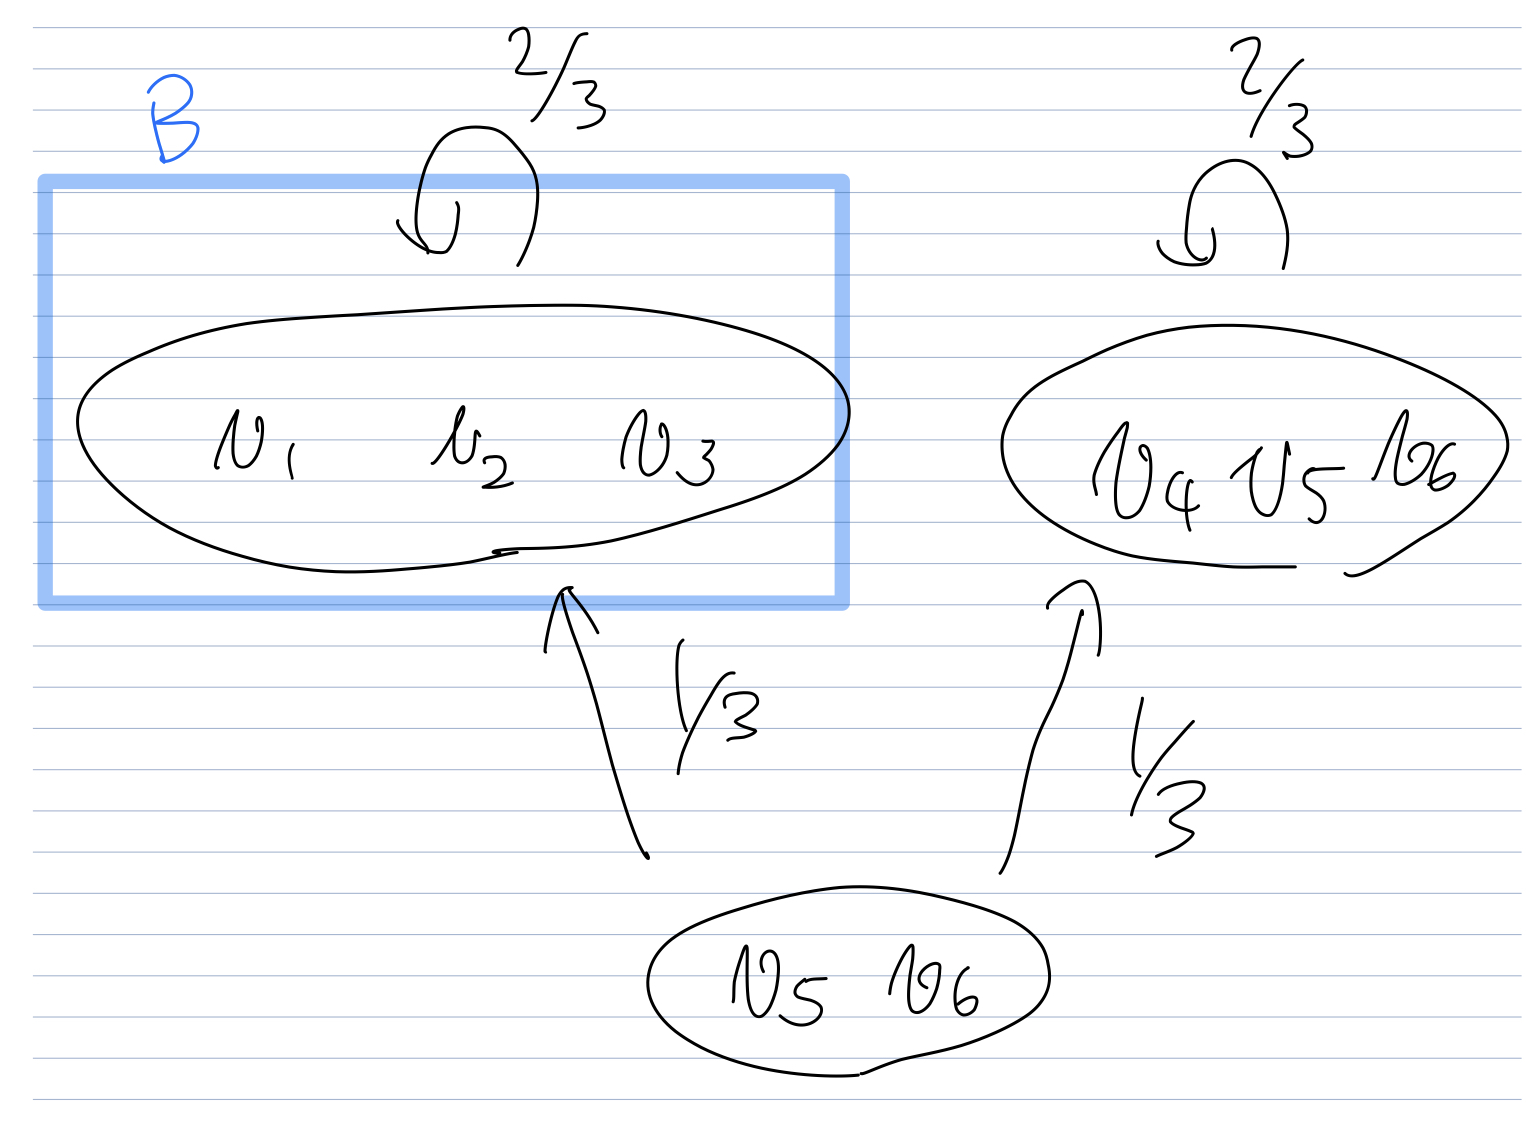 2/3
2/3
B
v1 v2 v3
v4 v5 v6
1/3
1/3
v5 v6